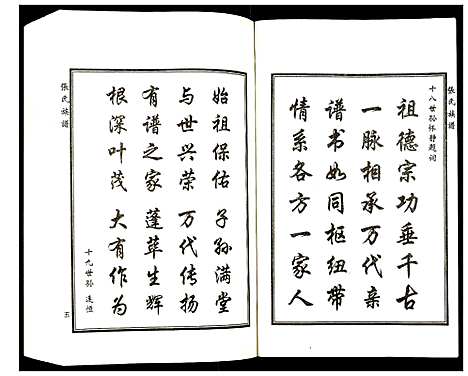 張氏族譜
十八世孙怀静题词
祖德宗功垂千古
一脉相承万代亲
谱书如同枢纽带
情系各方一家人
始祖保佑 子孙满堂
与世兴荣 万代传扬
有谱之家 蓬荜生辉
根深叶茂 大有作为
十九世孙 连恒
張氏族譜
五